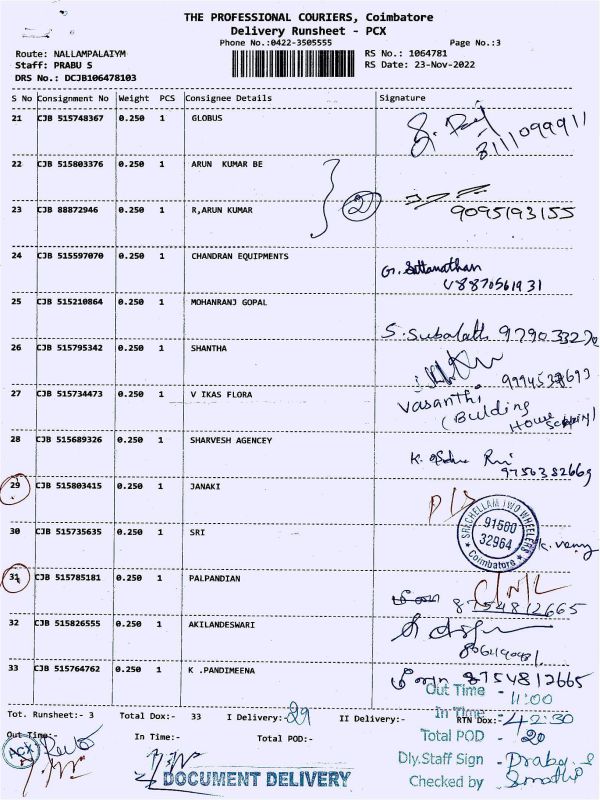 THE PROFESSIONAL COURIERS, Coimbatore
Delivery Runsheet - PCX
Phone No.:0422-3505555 Page No.:3
Route: NALLAMPALAIYM RS No.: 1064781
Staff: PRABU S RS Date: 23-Nov-2022
DRS No.: DCJB106478103
S No Consignment No Weight PCS Consignee Details Signature
21 CJB 515748367 0.250 1 GLOBUS
22 CJB 515803376 0.250 1 ARUN KUMAR BE
2
23 CJB 88872946 0.250 1 R,ARUN KUMAR 9095193155
24 CJB 515597070 0.250 1 CHANDRAN EQUIPMENTS
25 CJB 515210864 0.250 1 MOHANRANJ GOPAL
26 CJB 515795342 0.250 1 SHANTHA
27 CJB 515734473 0.250 1 V IKAS FLORA Vasanthi
(Building House
28 CJB 515689326 0.250 1 SHARVESH AGENCEY
9756382669
29 CJB 515803415 0.250 1 JANAKI
30 CJB 515735635 0.250 1 SRI
SRI CHELLAM TWO WHEELERS 91500 32964 Coimbatore
31 CJB 515785181 0.250 1 PALPANDIAN
8754812665
32 CJB 515826555 0.250 1 AKILANDESWARI
33 CJB 515764762 0.250 1 K .PANDIMEENA 8754812665
Out Time - 11:00
Tot. Runsheet:- 3 Total Dox:- 33 I Delivery:- 29 II Delivery:- RTN Dox:- 4
In Time - 2:30
Out Time:- In Time:- Total POD:-
Total POD - 20
ACX
Dly.Staff Sign - Prabu.S
DOCUMENT DELIVERY
Checked by -